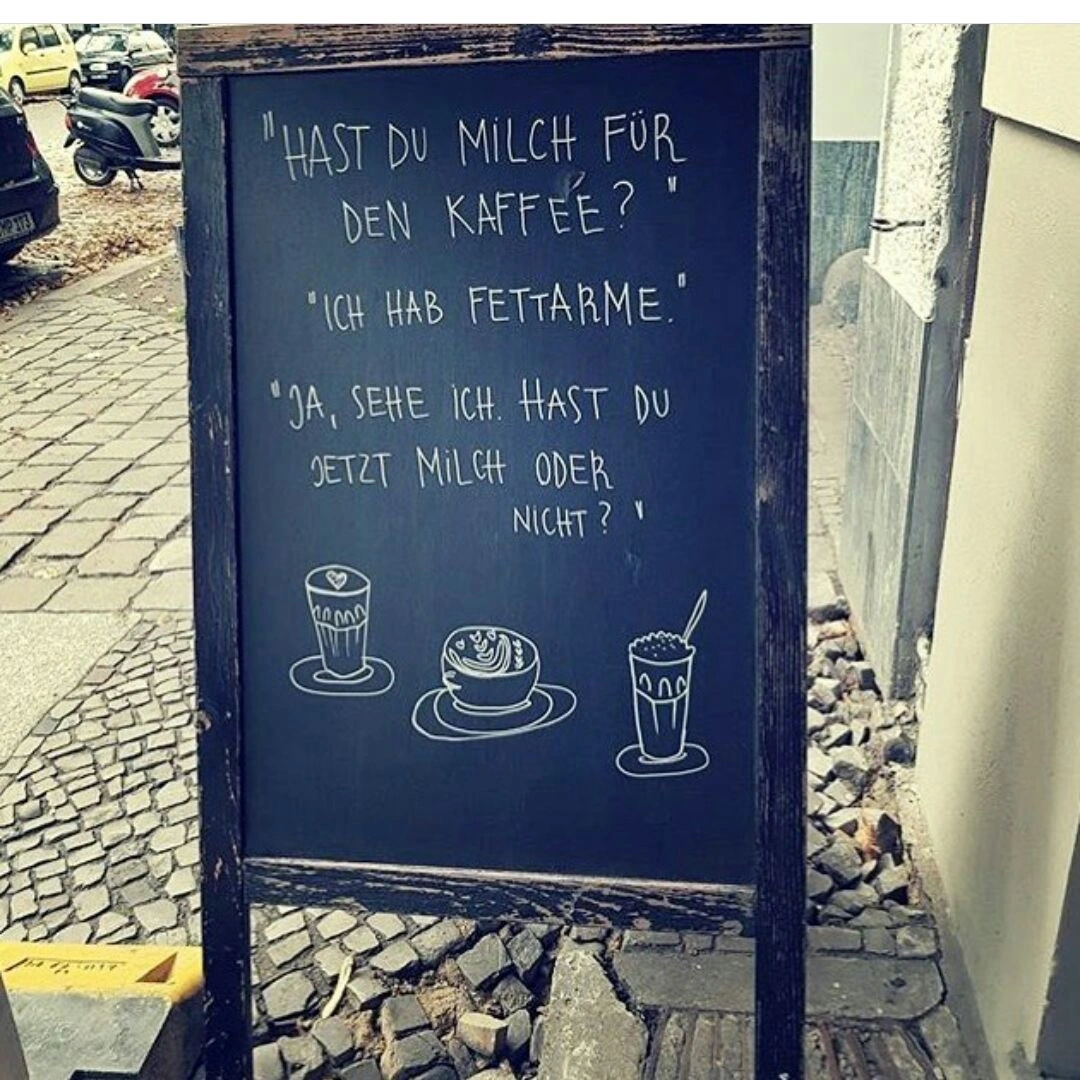 "HAST DU MILCH FÜR
DEN KAFFEÉ?"
"ICH HAB FETTARME."
"JA, SEHE ICH. HAST DU
JETZT MILCH ODER
NICHT?"